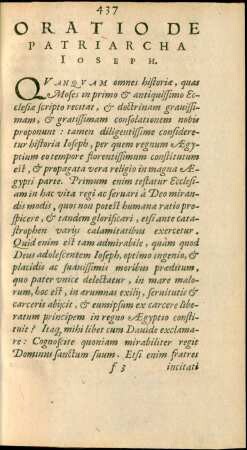 437
ORATIO DE
PATRIARCHA
IOSEPH.
QVANQVAM omnes historiæ, quas
Moses in primo & antiquissimo Ec-
clesiæ scripto recitat, & doctrinam grauissi-
mam, & gratissimam consolationem nobis
proponunt: tamen diligentissime considere-
tur historia Ioseph, per quem regnum Ægy-
ptium eo tempore florentissimum constitutum
est, & propagata vera religio in magna Æ-
gypti parte. Primum enim testatur Ecclesi-
am in hac vita regi ac seruari à Deo miran-
dis modis, quos non potest humana ratio pro-
spicere, & tandem glorificari, etsi ante cata-
strophen varijs calamitatibus exercetur.
Quid enim est tam admirabile, quàm quod
Deus adolescentem Ioseph, optimo ingenio, &
placidis ac suauissimis moribus præditum,
quo pater vnice delectatur, in mare malo-
rum, hoc est, in ærumnas exilij, seruitutis &
carceris abijcit, & eumipsum ex carcere libe-
ratum principem in regno Ægyptio consti-
tuit? Itaq; mihi libet cum Dauide exclama-
re: Cognoscite quoniam mirabiliter regit
Dominus sanctum suum. Etsi enim fratres
f 3 incitati